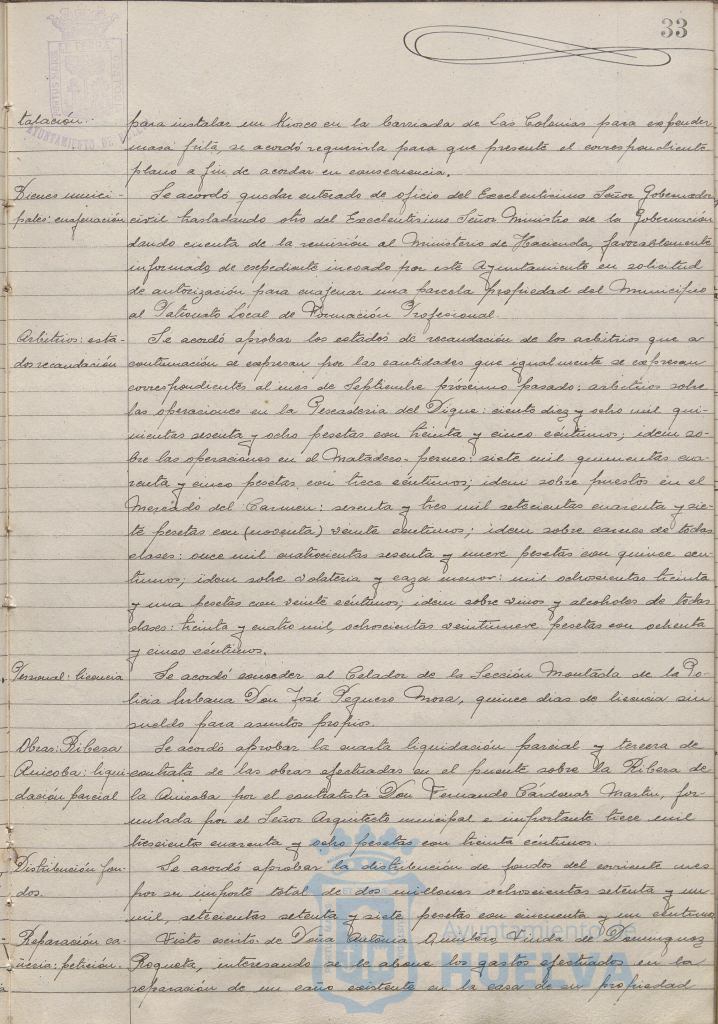 33
talación.
para instalar un Kiosco en la barriada de Las Colonias para expender
masa frita, se acordó requerirla para que presente el correspondiente
plano a fin de acordar en consecuencia.
Bienes munici-
pales: enajenación
Se acordó quedar enterado de oficio del Excelentísimo Señor Gobernador
civil trasladando otro del Excelentísimo Señor Ministro de la Gobernación
dando cuenta de la remisión al Ministerio de Hacienda, favorablemente
informado, de expediente incoado por este Ayuntamiento en solicitud
de autorización para enajenar una parcela propiedad del Municipio
al Patronato Local de Formación Profesional.
Arbitrios: esta-
dos recaudación
Se acordó aprobar los estados de recaudación de los arbitrios que a
continuación se expresan por las cantidades que igualmente se expresan
correspondientes al mes de Septiembre próximo pasado: arbitrios sobre
las operaciones en la Pescadería del Dique: ciento diez y ocho mil qui-
nientas sesenta y ocho pesetas con treinta y cinco céntimos; idem so-
bre las operaciones en el Matadero porcno: siete mil quinientas cua-
renta y cinco pesetas con trece céntimos; idem sobre puestos en el
Mercado del Carmen: sesenta y tres mil setecientas cuarenta y sie-
te pesetas con (noventa) veinte céntimos; idem sobre carnes de todas
clases: once mil cuatrocientas sesenta y nueve pesetas con quince cén-
timos; idem sobre volatería y caza menor: mil ochocientas treinta
y una pesetas con veinte céntimos; idem sobre vinos y alcoholes de todas
clases: treinta y cuatro mil, ochocientas veintinueve pesetas con ochenta
y cinco céntimos.
Personal: licencia
Se acordó conceder al Celador de la Sección Montada de la Po-
licia Urbana Don José Peguero Mora, quince dias de licencia sin
sueldo para asuntos propios.
Obras: Ribera
Anicoba: liqui-
dación parcial
Se acordó aprobar la cuarta liquidación parcial y tercera de
contrata de las obras efectuadas en el puente sobre la Ribera de
la Anicoba por el contratista Don Fernando Cárdenas Martin, for-
mulada por el Señor Arquitecto municipal e importante trece mil
trescientas cuarenta y ocho pesetas con treinta céntimos.
Distribución fon-
dos.
Se acordó aprobar la distribución de fondos del corriente mes
por su importe total de dos millones ochocientas setenta y un
mil, setecientas setenta y siete pesetas con cincuenta y un céntimo
Reparación ca-
ñería: petición.
Visto escrito de Doña Antonia Quintero, Viuda de Dominguez
Roqueta, interesando se le abone los gastos efectuados en la
reparación de un caño existente en la casa de su propiedad
Ayuntamiento de
HUELVA